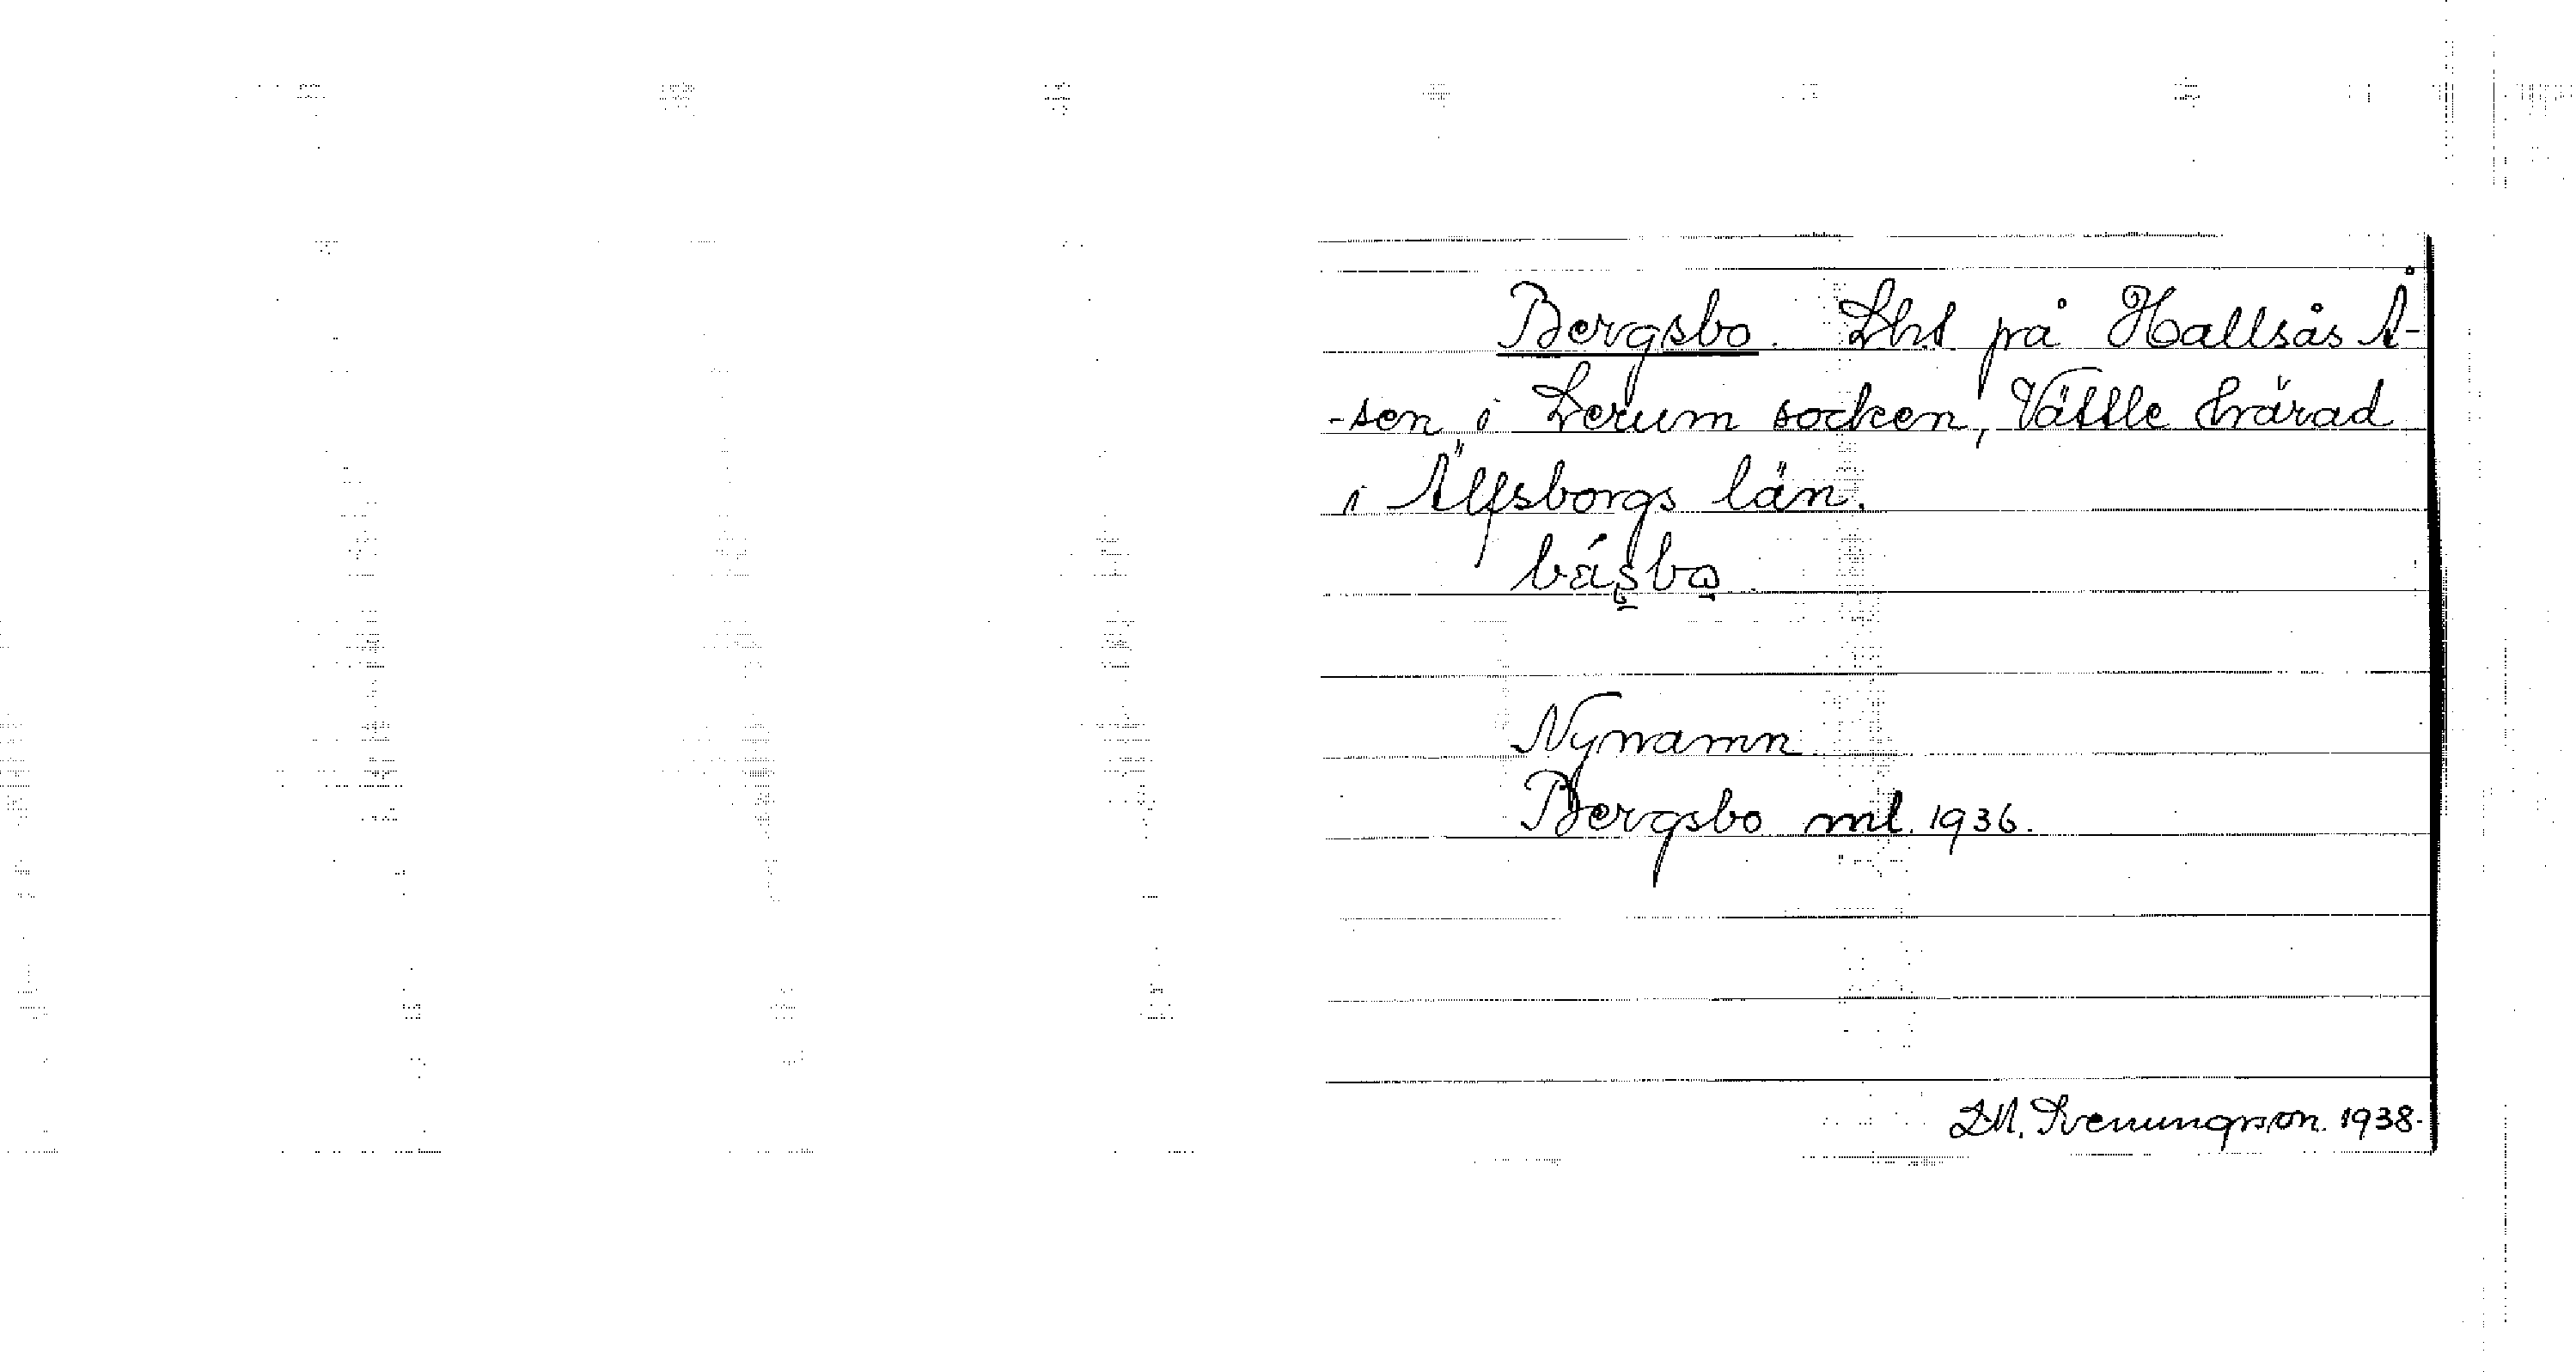 Bergsbo. Lht på Hallsås Å-
-sen i Lerum socken, Vättle härad
i Älfsborgs län.
Nynamn
Bergsbo ml. 1936.
1938.